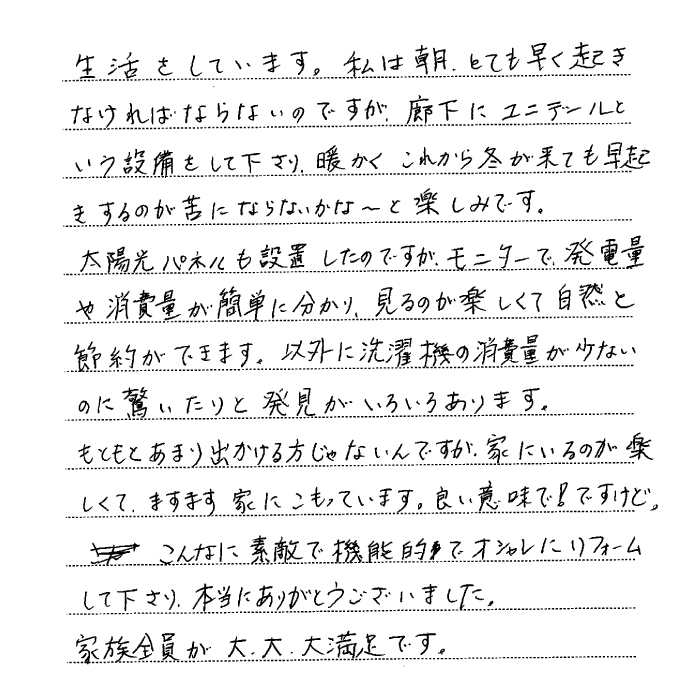 生活をしています。私は朝、とても早く起き
なければならないのですが、廊下にユニデールと
いう設備をして下さり、暖かくこれから冬が来ても早起
きするのが苦にならないかな〜と楽しみです。
太陽光パネルも設置したのですが、モニターで、発電量
や消費量が簡単に分かり、見るのが楽しくて自然と
節約ができます。以外に洗濯機の消費量が少ない
のに驚いたりと発見がいろいろあります。
もともとあまり出かける方じゃないんですが、家にいるのが楽
しくて、ますます家にこもっています。良い意味で!ですけど。
こんなに素敵で機能的でオシャレにリフォーム
して下さり、本当にありがとうございました。
家族全員が大、大、大満足です。